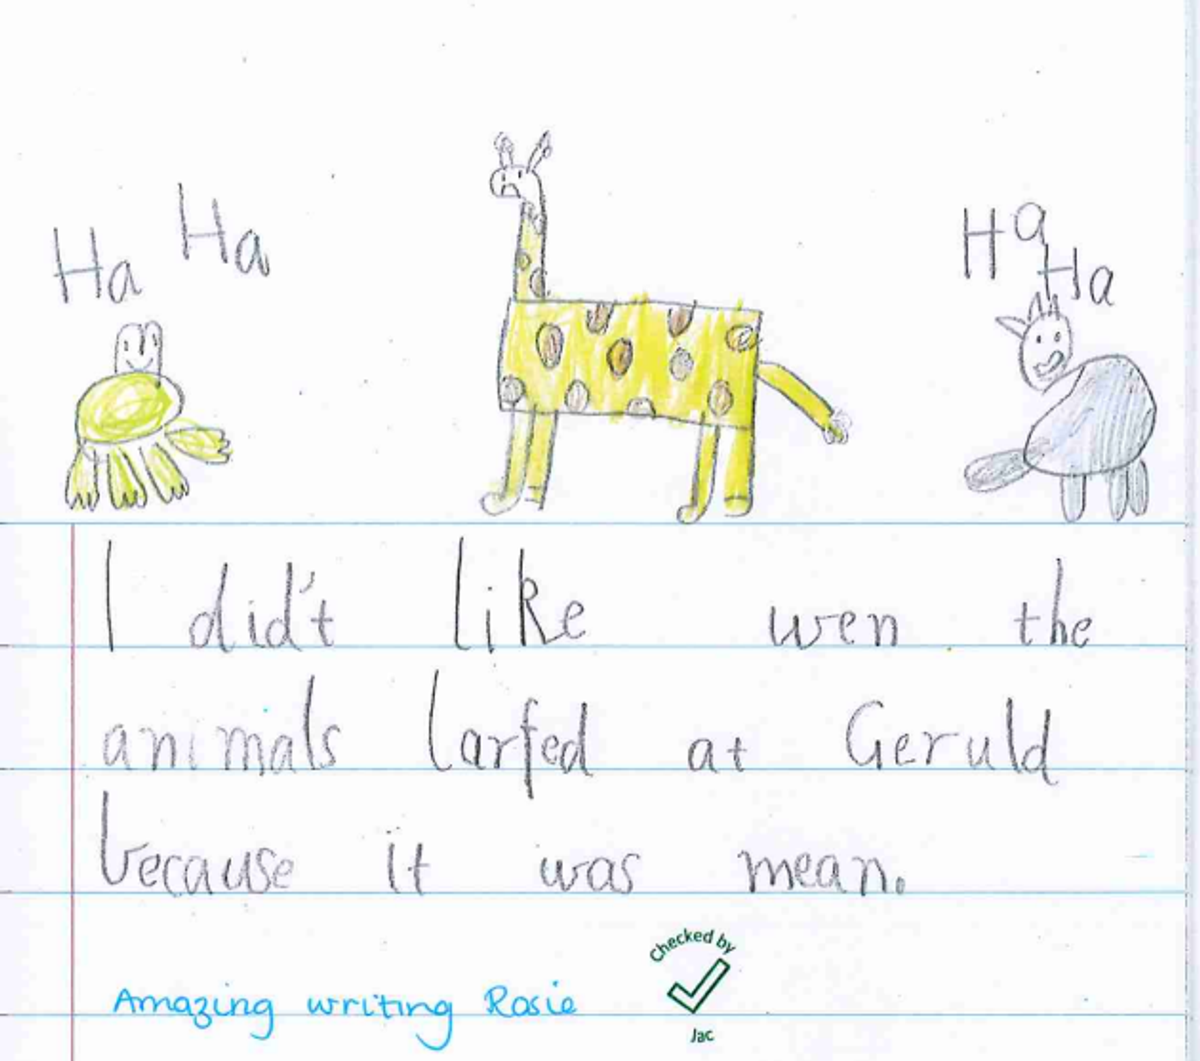 Ha Ha
Ha
Ha
I did't like wen the
animals larfed at Geruld
because it was mean.
Amazing writing Rosie
Checked by
Jac